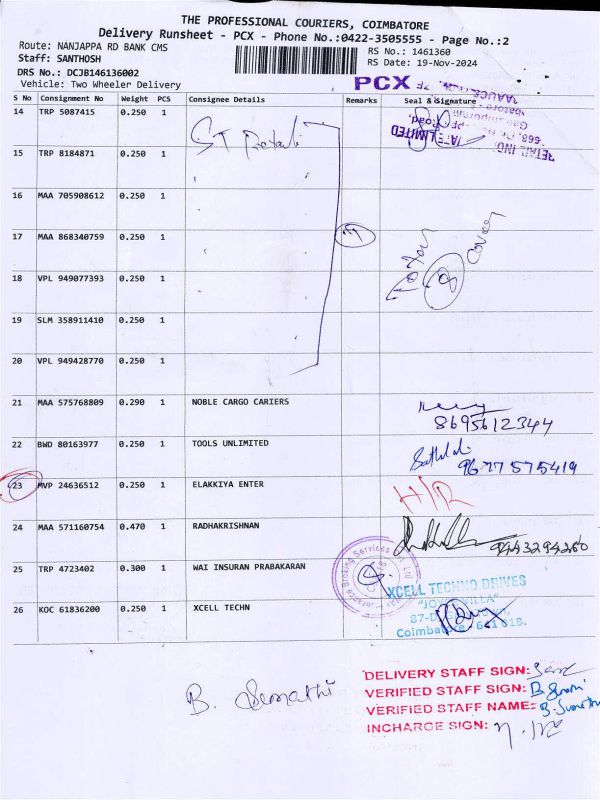 THE PROFESSIONAL COURIERS, COIMBATORE
Delivery Runsheet - PCX - Phone No.:0422-3505555 - Page No.:2
Route: NANJAPPA RD BANK CMS RS No.: 1461360
Staff: SANTHOSH RS Date: 19-Nov-2024
DRS No.: DCJB146136002
Vehicle: Two Wheeler Delivery PCX
S No Consignment No Weight PCS Consignee Details Remarks Seal & Signature
14 TRP 5087415 0.250 1 ST
LIMITED
RETAIL
15 TRP 8184871 0.250 1
16 MAA 705908612 0.250 1
17 MAA 868340759 0.250 1
18 VPL 949077393 0.250 1
19 SLM 358911410 0.250 1
20 VPL 949428770 0.250 1
21 MAA 575768809 0.290 1 NOBLE CARGO CARIERS
8695612344
22 BWD 80163977 0.250 1 TOOLS UNLIMITED
9677575419
23 MVP 24636512 0.250 1 ELAKKIYA ENTER
24 MAA 571160754 0.470 1 RADHAKRISHNAN
9443294260
25 TRP 4723402 0.300 1 WAI INSURAN PRABAKARAN
Broking Services
XCELL TECHNO DRIVES
26 KOC 61836200 0.250 1 XCELL TECHN
B. Sumathi
DELIVERY STAFF SIGN:
VERIFIED STAFF SIGN: B
VERIFIED STAFF NAME: B. Sumathi
INCHARGE SIGN: